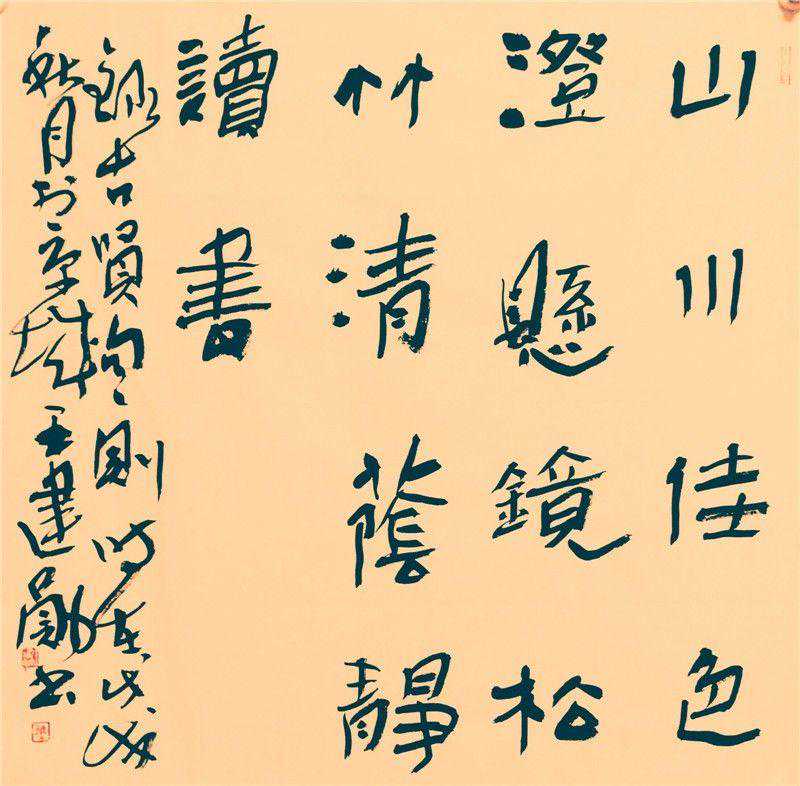 山川佳色
澄懸鏡松
竹清蔭靜
讀書
錄古賢則時在戊戌
秋月於京城王建勛書